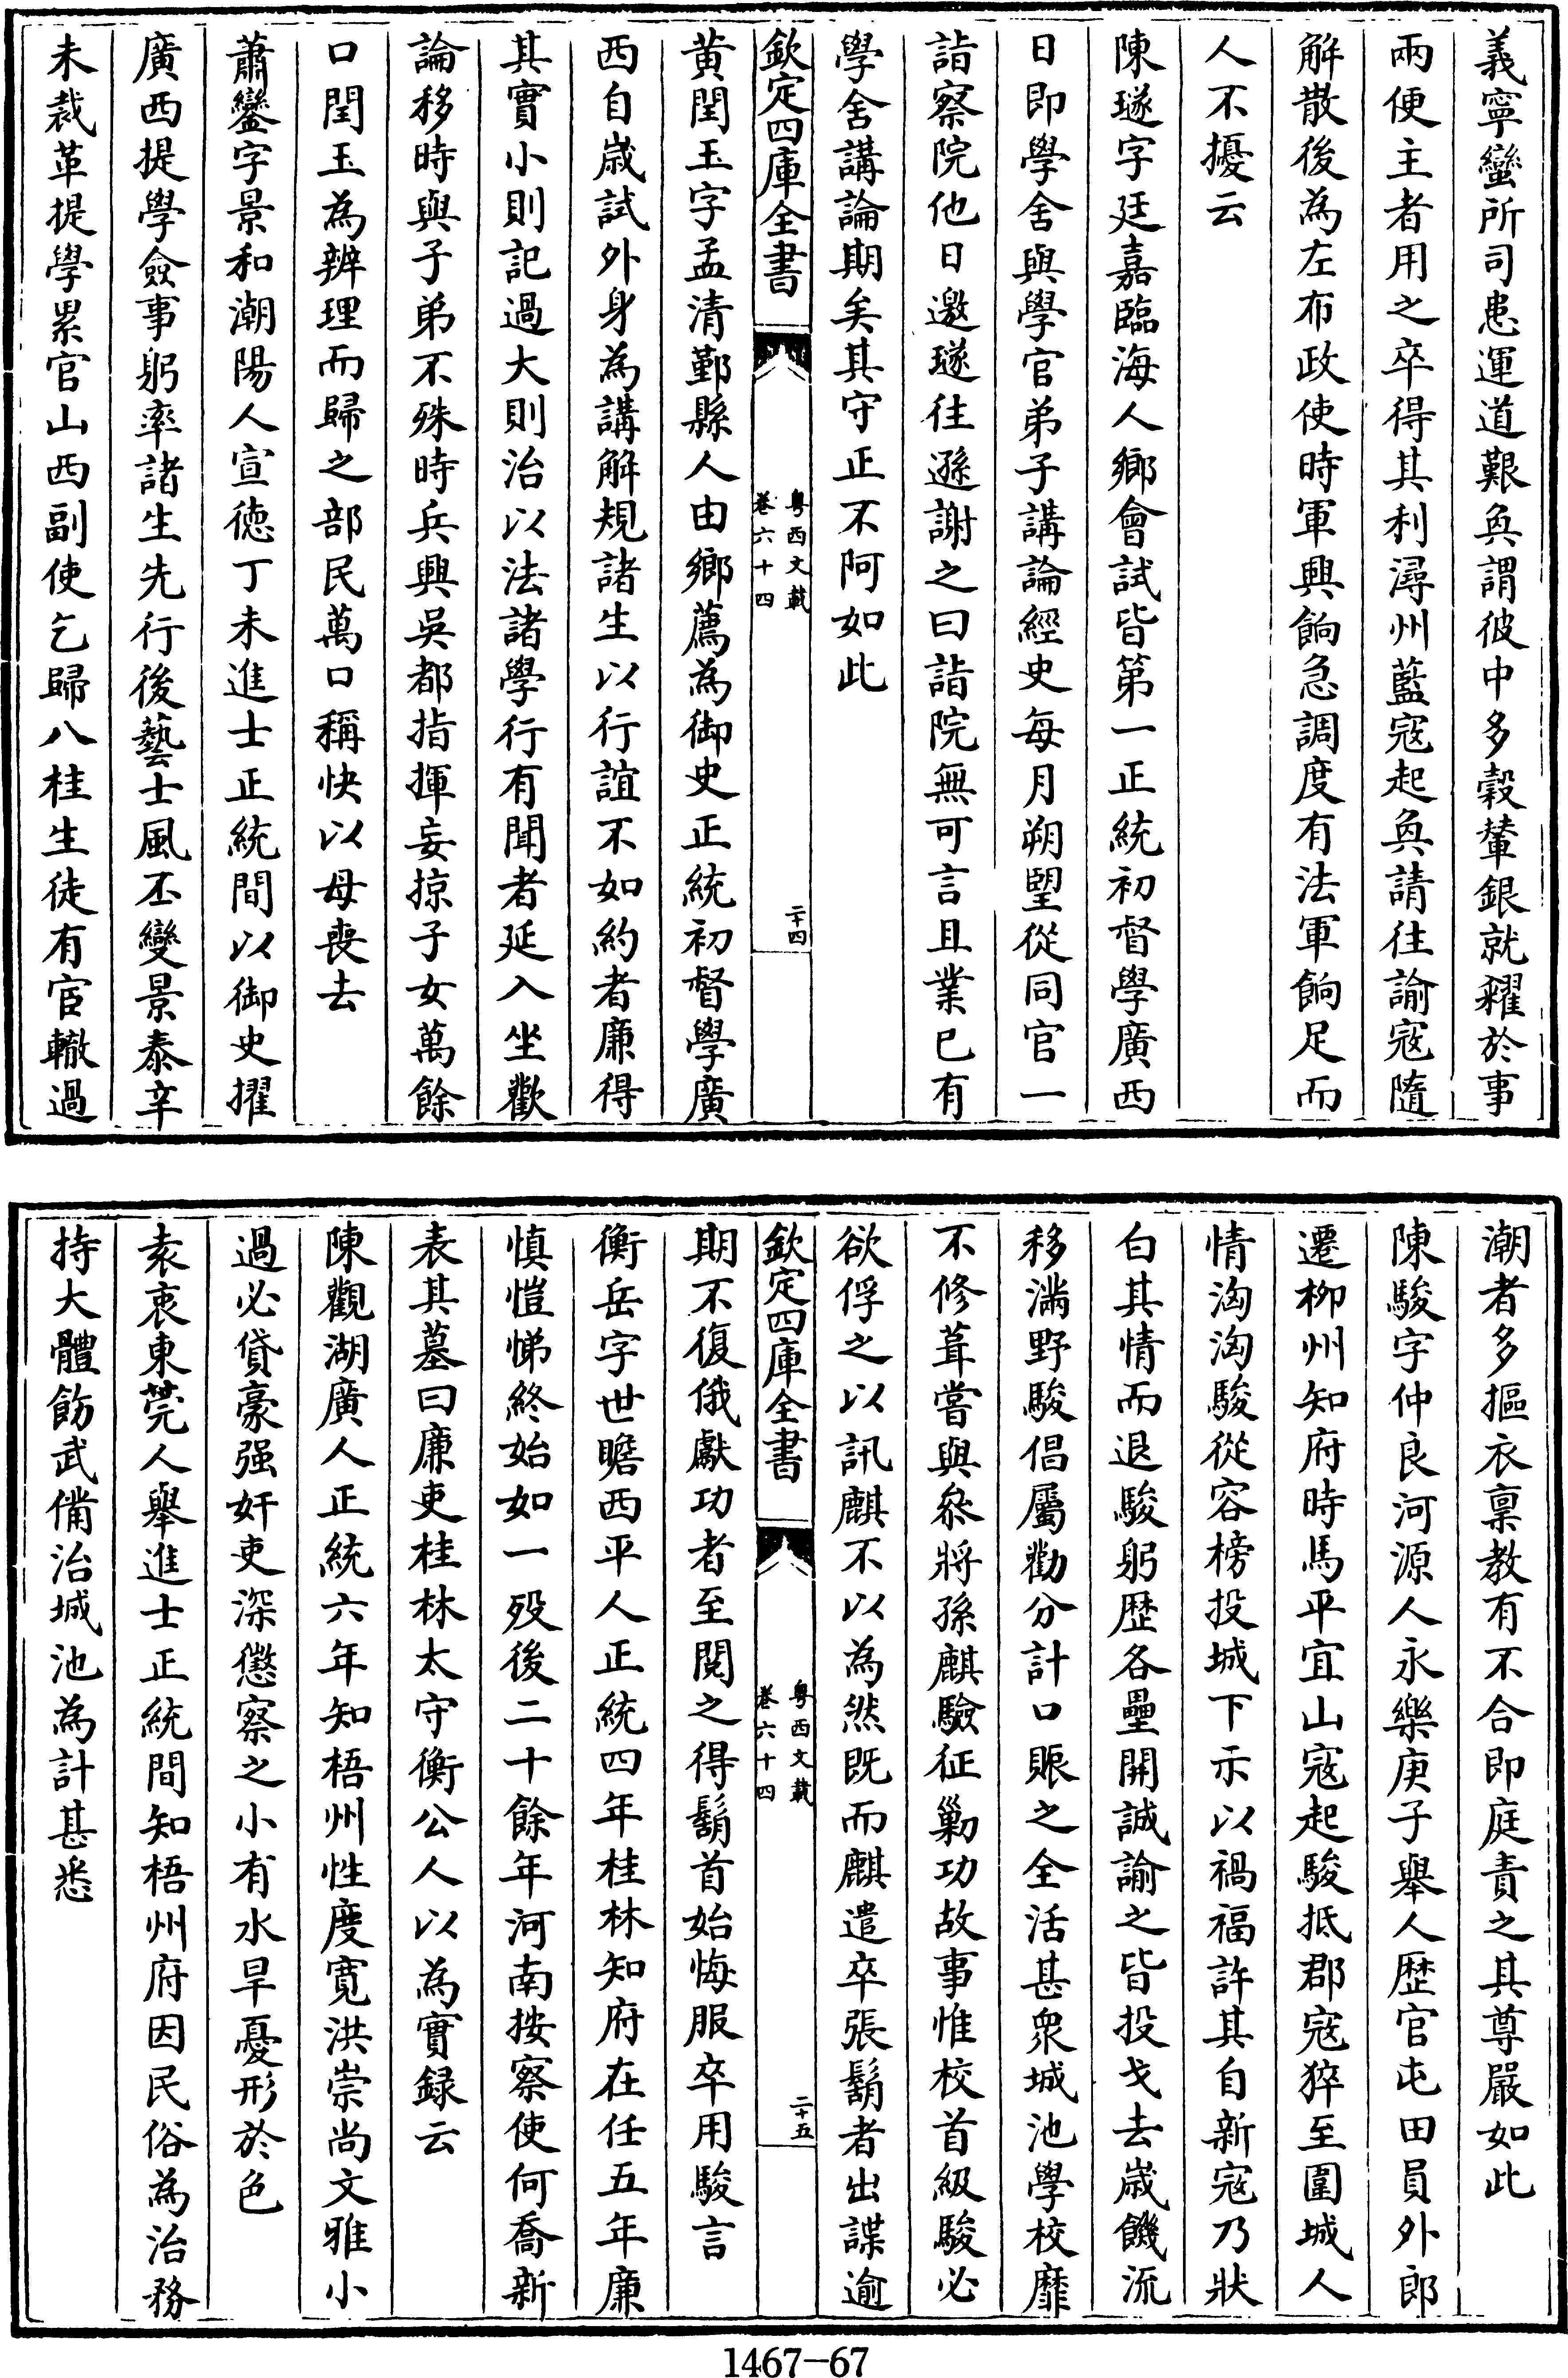 義寧蠻所司患運道艱奐謂彼中多穀輦銀就糴於事
兩便主者用之卒得其利潯州藍寇起奐請往諭寇隨
解散後為左布政使時軍興餉急調度有法軍餉足而
人不擾云
陳璲字廷嘉臨海人鄉會試皆第一正統初督學廣西
日即學舍與學官弟子講論經史每月朔望從同官一
詣察院他日邀璲往遜謝之曰詣院無可言且業已有
學舍講論期矣其守正不阿如此
欽定四庫全書
粤西文載
卷六十四
二十四
黄閏玉字孟清鄞縣人由鄉薦為御史正統初督學廣
西自歲試外身為講解規諸生以行誼不如約者廉得
其實小則記過大則治以法諸學行有聞者延入坐歡
論移時與子弟不殊時兵興吳都指揮妄掠子女萬餘
口閏玉為辨理而歸之部民萬口稱快以母喪去
蕭鑾字景和潮陽人宣德丁未進士正統間以御史擢
廣西提學僉事躬率諸生先行後藝士風丕變景泰辛
未裁革提學累官山西副使乞歸八桂生徒有宦轍過
潮者多摳衣禀教有不合即庭責之其尊嚴如此
陳駿字仲良河源人永樂庚子舉人歴官屯田員外郎
遷柳州知府時馬平宜山寇起駿抵郡寇猝至圍城人
情洶洶駿從容榜投城下示以禍福許其自新寇乃狀
白其情而退駿躬歴各壘開誠諭之皆投戈去歲饑流
移滿野駿倡屬勸分計口賑之全活甚衆城池學校靡
不修葺嘗與叅將孫麒驗征勦功故事惟校首級駿必
欲俘之以訊麒不以為然既而麒遣卒張鬍者出諜逾
欽定四庫全書
粤西文載
卷六十四
二十五
期不復俄獻功者至閱之得鬍首始悔服卒用駿言
衡岳字世瞻西平人正統四年桂林知府在任五年廉
慎愷悌終始如一殁後二十餘年河南按察使何喬新
表其墓曰廉吏桂林太守衡公人以為實録云
陳觀湖廣人正統六年知梧州性度寛洪崇尚文雅小
過必貸豪强奸吏深懲察之小有水旱憂形於色
袁衷東莞人舉進士正統間知梧州府因民俗為治務
持大體飭武備治城池為計甚悉
1467-67